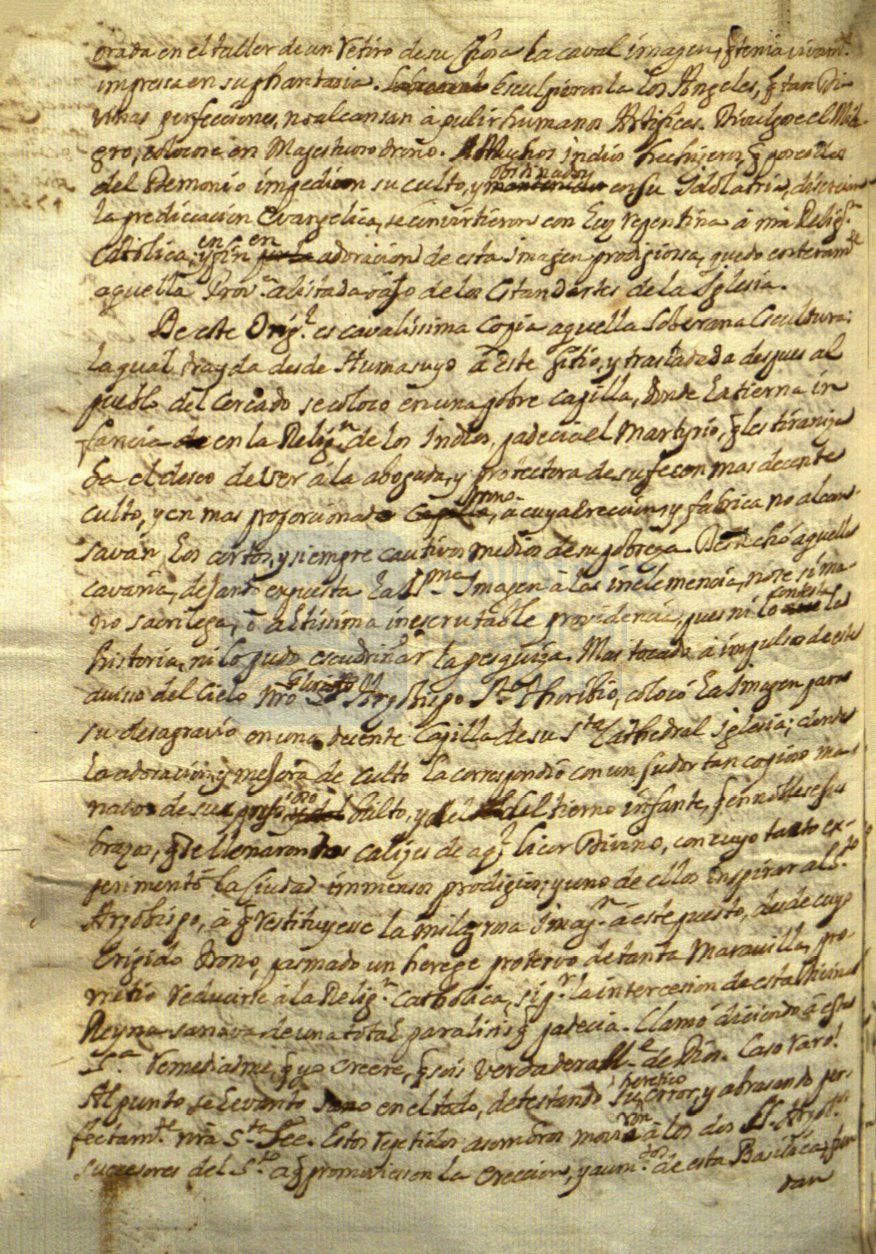 orada en el taller de un retiro de su Choza la caval imagen, q̃ tenia vivam.te
impressa en su phantasia. Esculpieronla los Angeles, q̃ tan Di-
vinas perfecciones, no alcansan à pulir humanos Artifices. Divulgose el Mila-
gro, colocose en Magestuoso Trono. Muchos indios hechiseros, q̃ por
del Demonio impedian su culto, y obstinados en su Idolatria,
la predicacion Evangelica, se convirtieron con Luz repentina à nrã Relig.n
Catolica; y en fin en adoracion de esta imagen prodigiosa, quedo enteram.te
aquella Prov.a alistada vajo de los Estandartes de la Iglesia.
De este Orig.l es cavalissima Copia aquella Soberana Escultura;
la qual trayda desde Humasuyo à este sitio, y trasladada despues al
pueblo del Cercado se coloco en una pobre capilla, donde la tierna in
fancia en la Relig.n de los Indios, padecia el Martyrio, q̃ les tiraniza
ba el deseo de ver à la abogada, y protectora de su fee con mas decente
culto, y en mas proporcionado trono, à cuya ereccion, y fabrica no alcan-
savan los cortos, y siempre cautivos medios de su pobreza. Derechó aquella
cavaña, dejando expuesta la S.ma Imagen à las inclemencias, no se si ma-
no sacrilega, ò altissima inescrutable providencia, pues ni lo contesta la
historia, ni lo pudo escudriñar la pesquiza. Mas tocado à impulso de este
aviso del Cielo nrõ Glorioso Arzobispo S.to Thoribio, colocó la Imagen para
su desagravio en una decente Capilla de su S.ta Cathedral Iglesia; donde
la adoracion, y mejora de culto la correspondio con un sudor tan copioso ma-
nado de su bulto, y del tierno infante, q̃ en sus
brazos, q̃ se llenaron dos calizes de aq.l licor Divino, con cuyo tacto ex-
perimentó la Ciudad immensos prodigios; y uno de ellos inspirar al S.to
Arzobispo, à q̃ restituyese la milagrosa Imag.n à este puesto, desde cuyo
Erigido Trono, pasmado un herege protervo de tanta Maravilla, pro-
metio reducirse à la Relig.n Catholica, si p.r la intercesion de esta Divina
Reyna sanava de una total paralisis q̃ padecia. Llamó diciendo à esta
S.ra remediadme, q̃ yo creere, q̃ sois verdadera M.e de Dios. Caso raro!
Al punto se levanto sano en el todo, detestando su heretico error, y abrasando per-
fectam.te nrã S.ta Fee. Estos repetidos asombros movieron à los dos S.S. Arzob.pos
sucesores del S.to à q̃ promoviessen la Ereccion, y aum.tos de esta Basilica, fun
dan